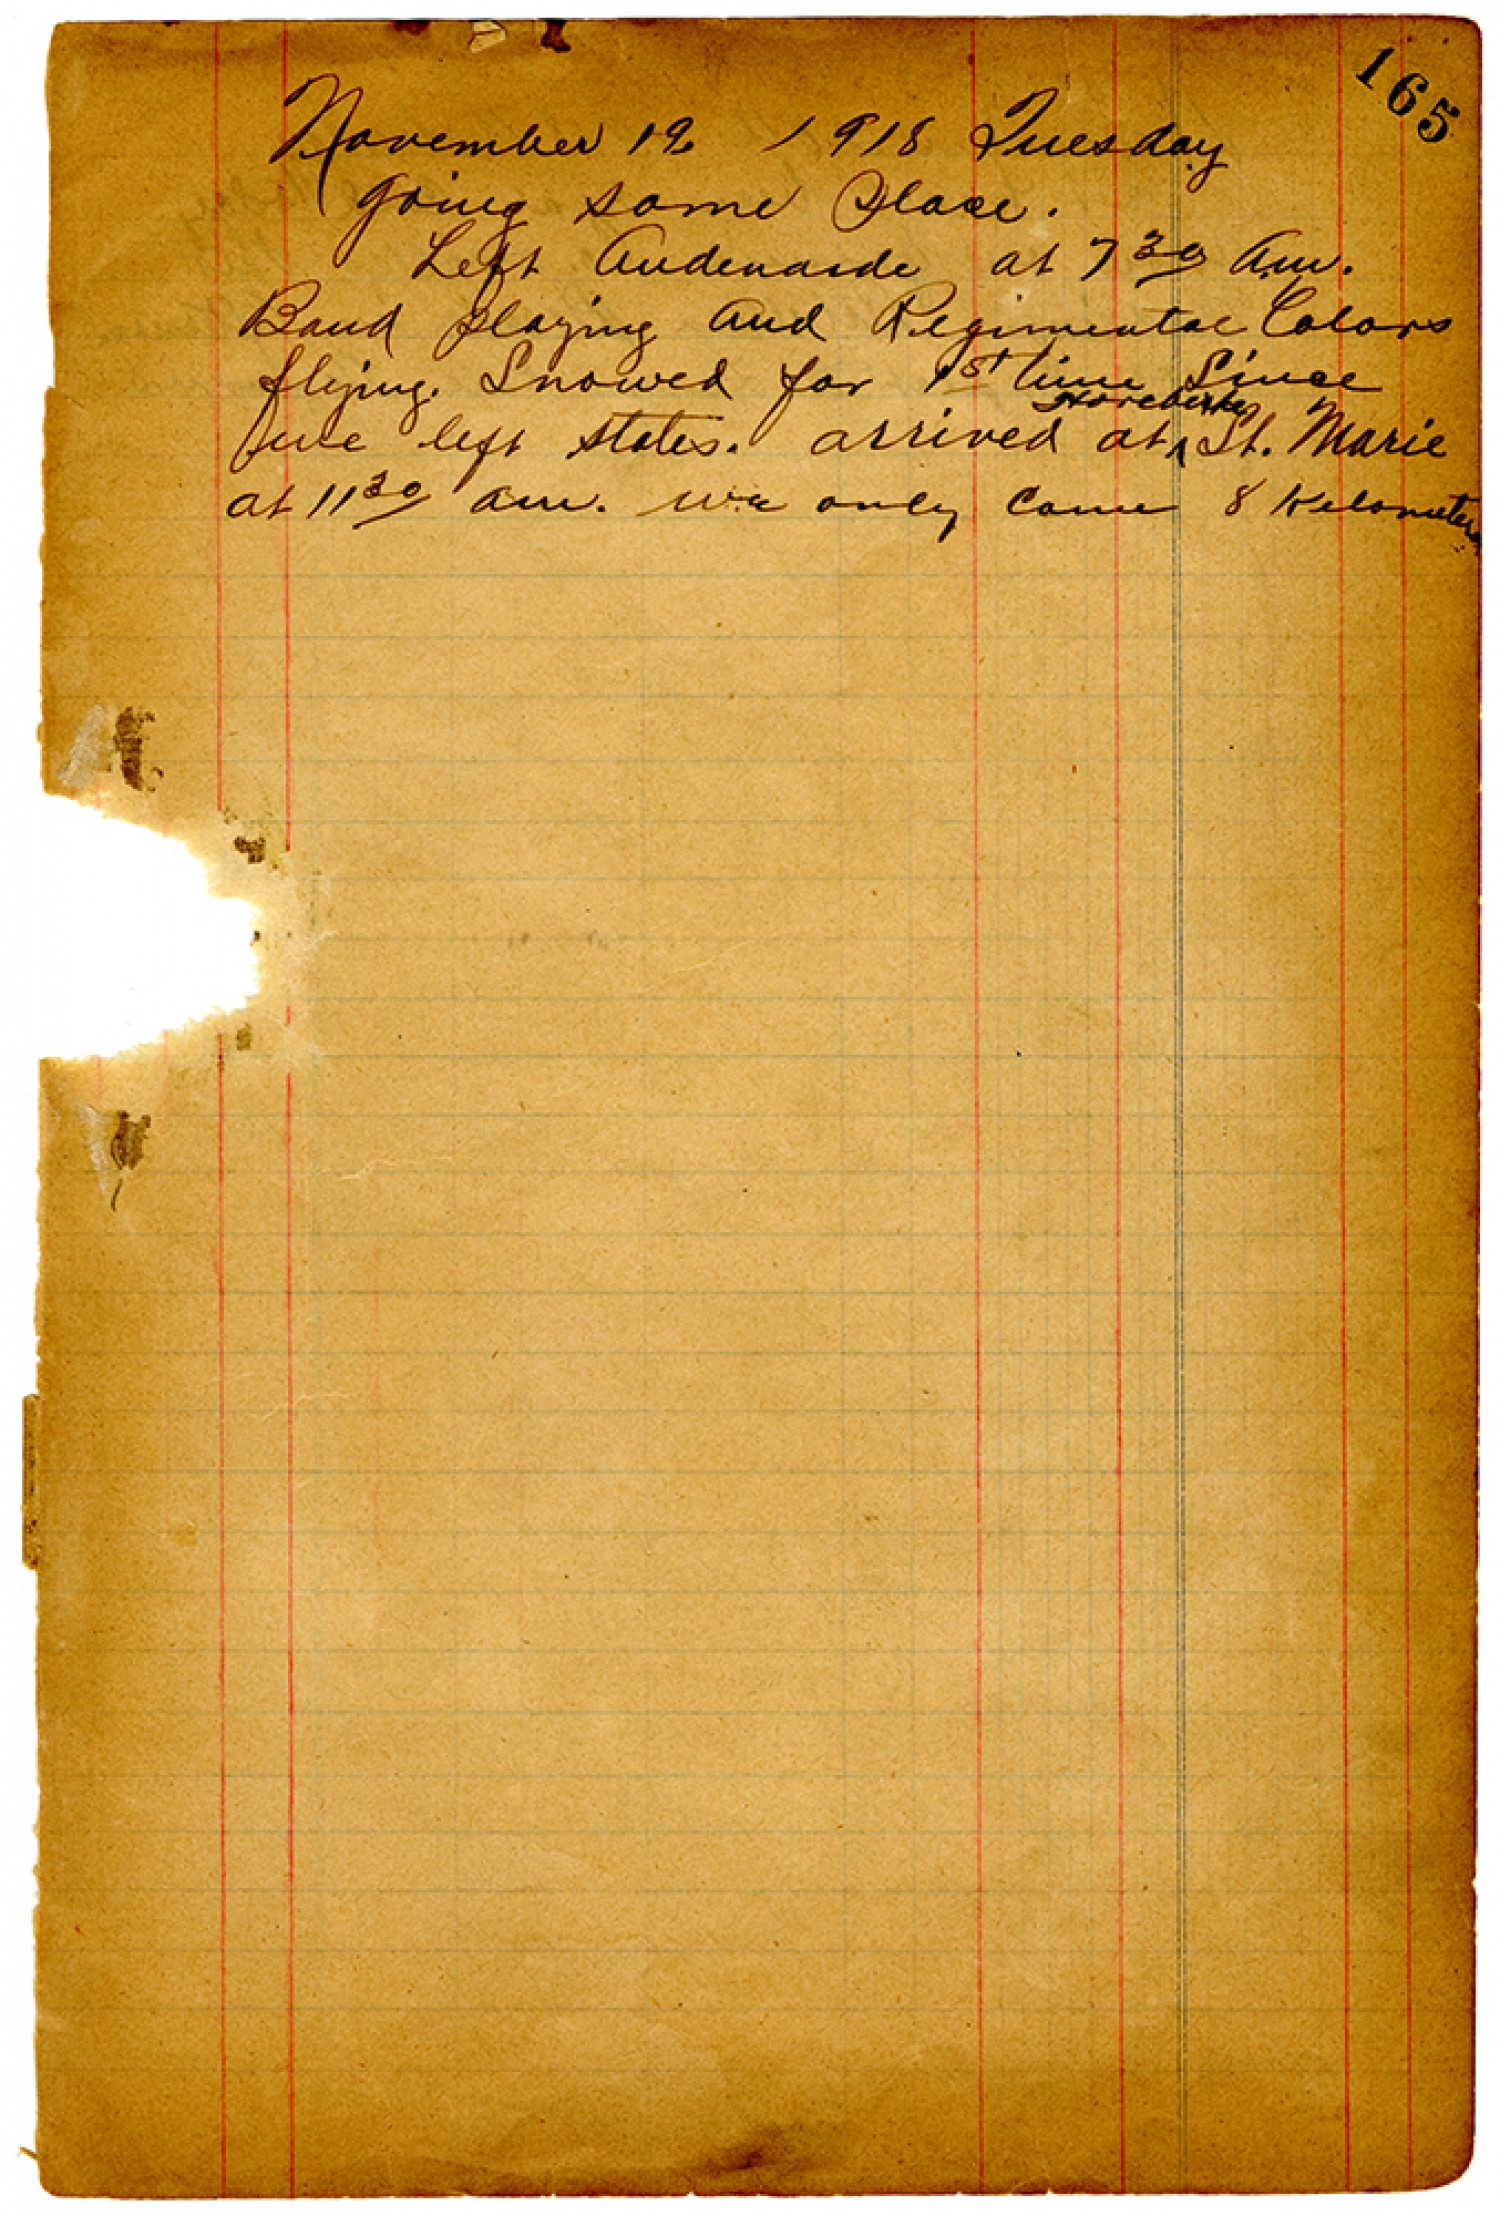 165
November 19 1918 Tuesday
Going some place.
Left Audenarde at 7 30 Am.
Band playing and Regimental Colors
flying. Snowed for 1st time since
we left states. arrived at Horebeke St. Marie
at 11 30 am. We only came 8 Kilometers